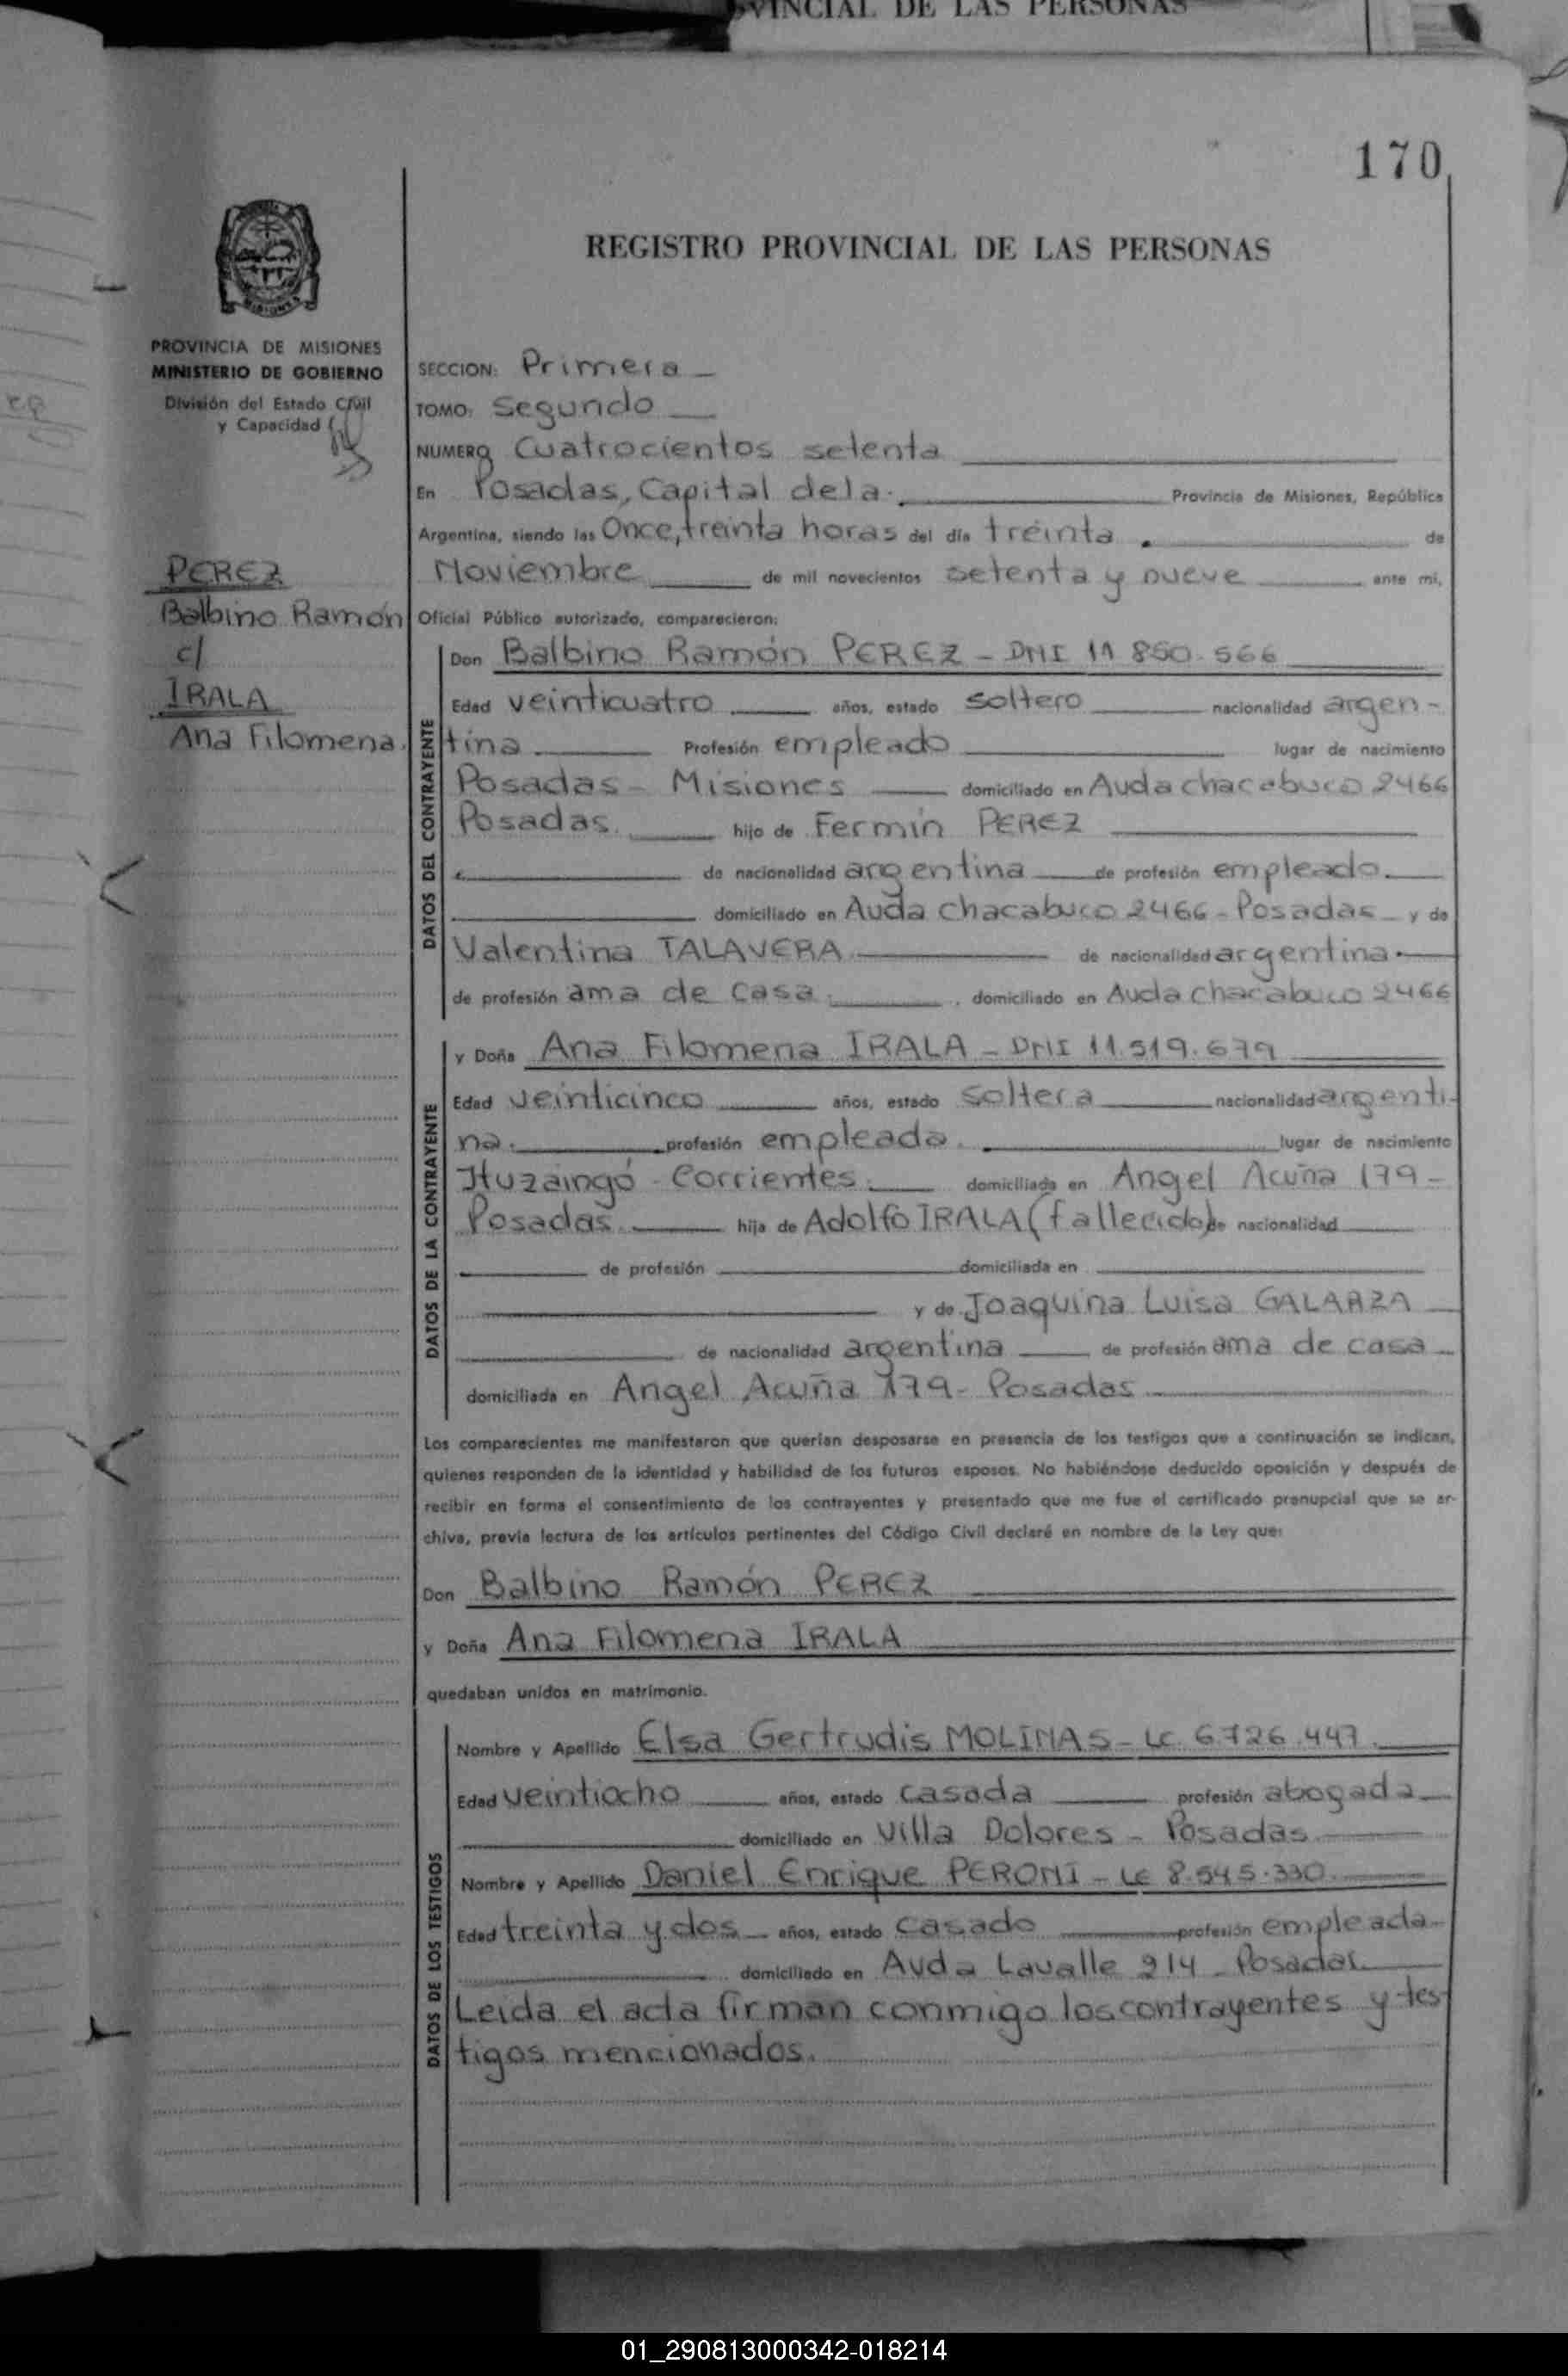 VINCIAL DE LAS PERSONAS
170
REGISTRO PROVINCIAL DE LAS PERSONAS
PROVINCIA DE MISIONES
MINISTERIO DE GOBIERNO
División del Estado Civil
y Capacidad
PEREZ
Balbino Ramón
c/
IRALA
Ana Filomena.
SECCION: Primera
TOMO: Segundo
NUMERO Cuatrocientos setenta
En Posadas, Capital de la. Provincia de Misiones, República
Argentina, siendo las Once, treinta horas del día treinta. de
Noviembre de mil novecientos setenta y nueve ante mi,
Oficial Público autorizado, comparecieron:
DATOS DEL CONTRAYENTE
Don Balbino Ramón PEREZ - DNI 11.850.566
Edad veinticuatro años, estado soltero nacionalidad argen-
tina Profesión empleado lugar de nacimiento
Posadas - Misiones domiciliado en Avda chacabuco 2466
Posadas. hijo de Fermín PEREZ
de nacionalidad argentina de profesión empleado.
domiciliado en Avda chacabuco 2466 - Posadas - y de
Valentina TALAVERA de nacionalidad argentina.
de profesión ama de casa. domiciliado en Avda chacabuco 2466
DATOS DE LA CONTRAYENTE
y Doña Ana Filomena IRALA - DNI 11.519.679
Edad veinticinco años, estado soltera nacionalidad argenti-
na. profesión empleada. lugar de nacimiento
Ituzaingó - Corrientes. domiciliada en Angel Acuña 179 -
Posadas. hija de Adolfo IRALA (fallecido) de nacionalidad
de profesión domiciliada en
y de Joaquina Luisa GALARZA
de nacionalidad argentina de profesión ama de casa
domiciliada en Angel Acuña 179 - Posadas
Los comparecientes me manifestaron que querían desposarse en presencia de los testigos que a continuación se indican,
quienes responden de la identidad y habilidad de los futuros esposos. No habiéndose deducido oposición y después de
recibir en forma el consentimiento de los contrayentes y presentado que me fue el certificado prenupcial que se ar-
chiva, previa lectura de los artículos pertinentes del Código Civil declaré en nombre de la Ley que:
Don Balbino Ramón PEREZ
y Doña Ana Filomena IRALA
quedaban unidos en matrimonio.
DATOS DE LOS TESTIGOS
Nombre y Apellido Elsa Gertrudis MOLINAS - LC. 6.726.447.
Edad veintiocho años, estado casada profesión abogada
domiciliado en Villa Dolores - Posadas
Nombre y Apellido Daniel Enrique PERONI - LE 8.545.330.
Edad treinta y dos años, estado casado profesión empleada
domiciliado en Avda Lavalle 914 - Posadas
Leida el acta firman conmigo los contrayentes y tes
tigos mencionados.
01_290813000342-018214